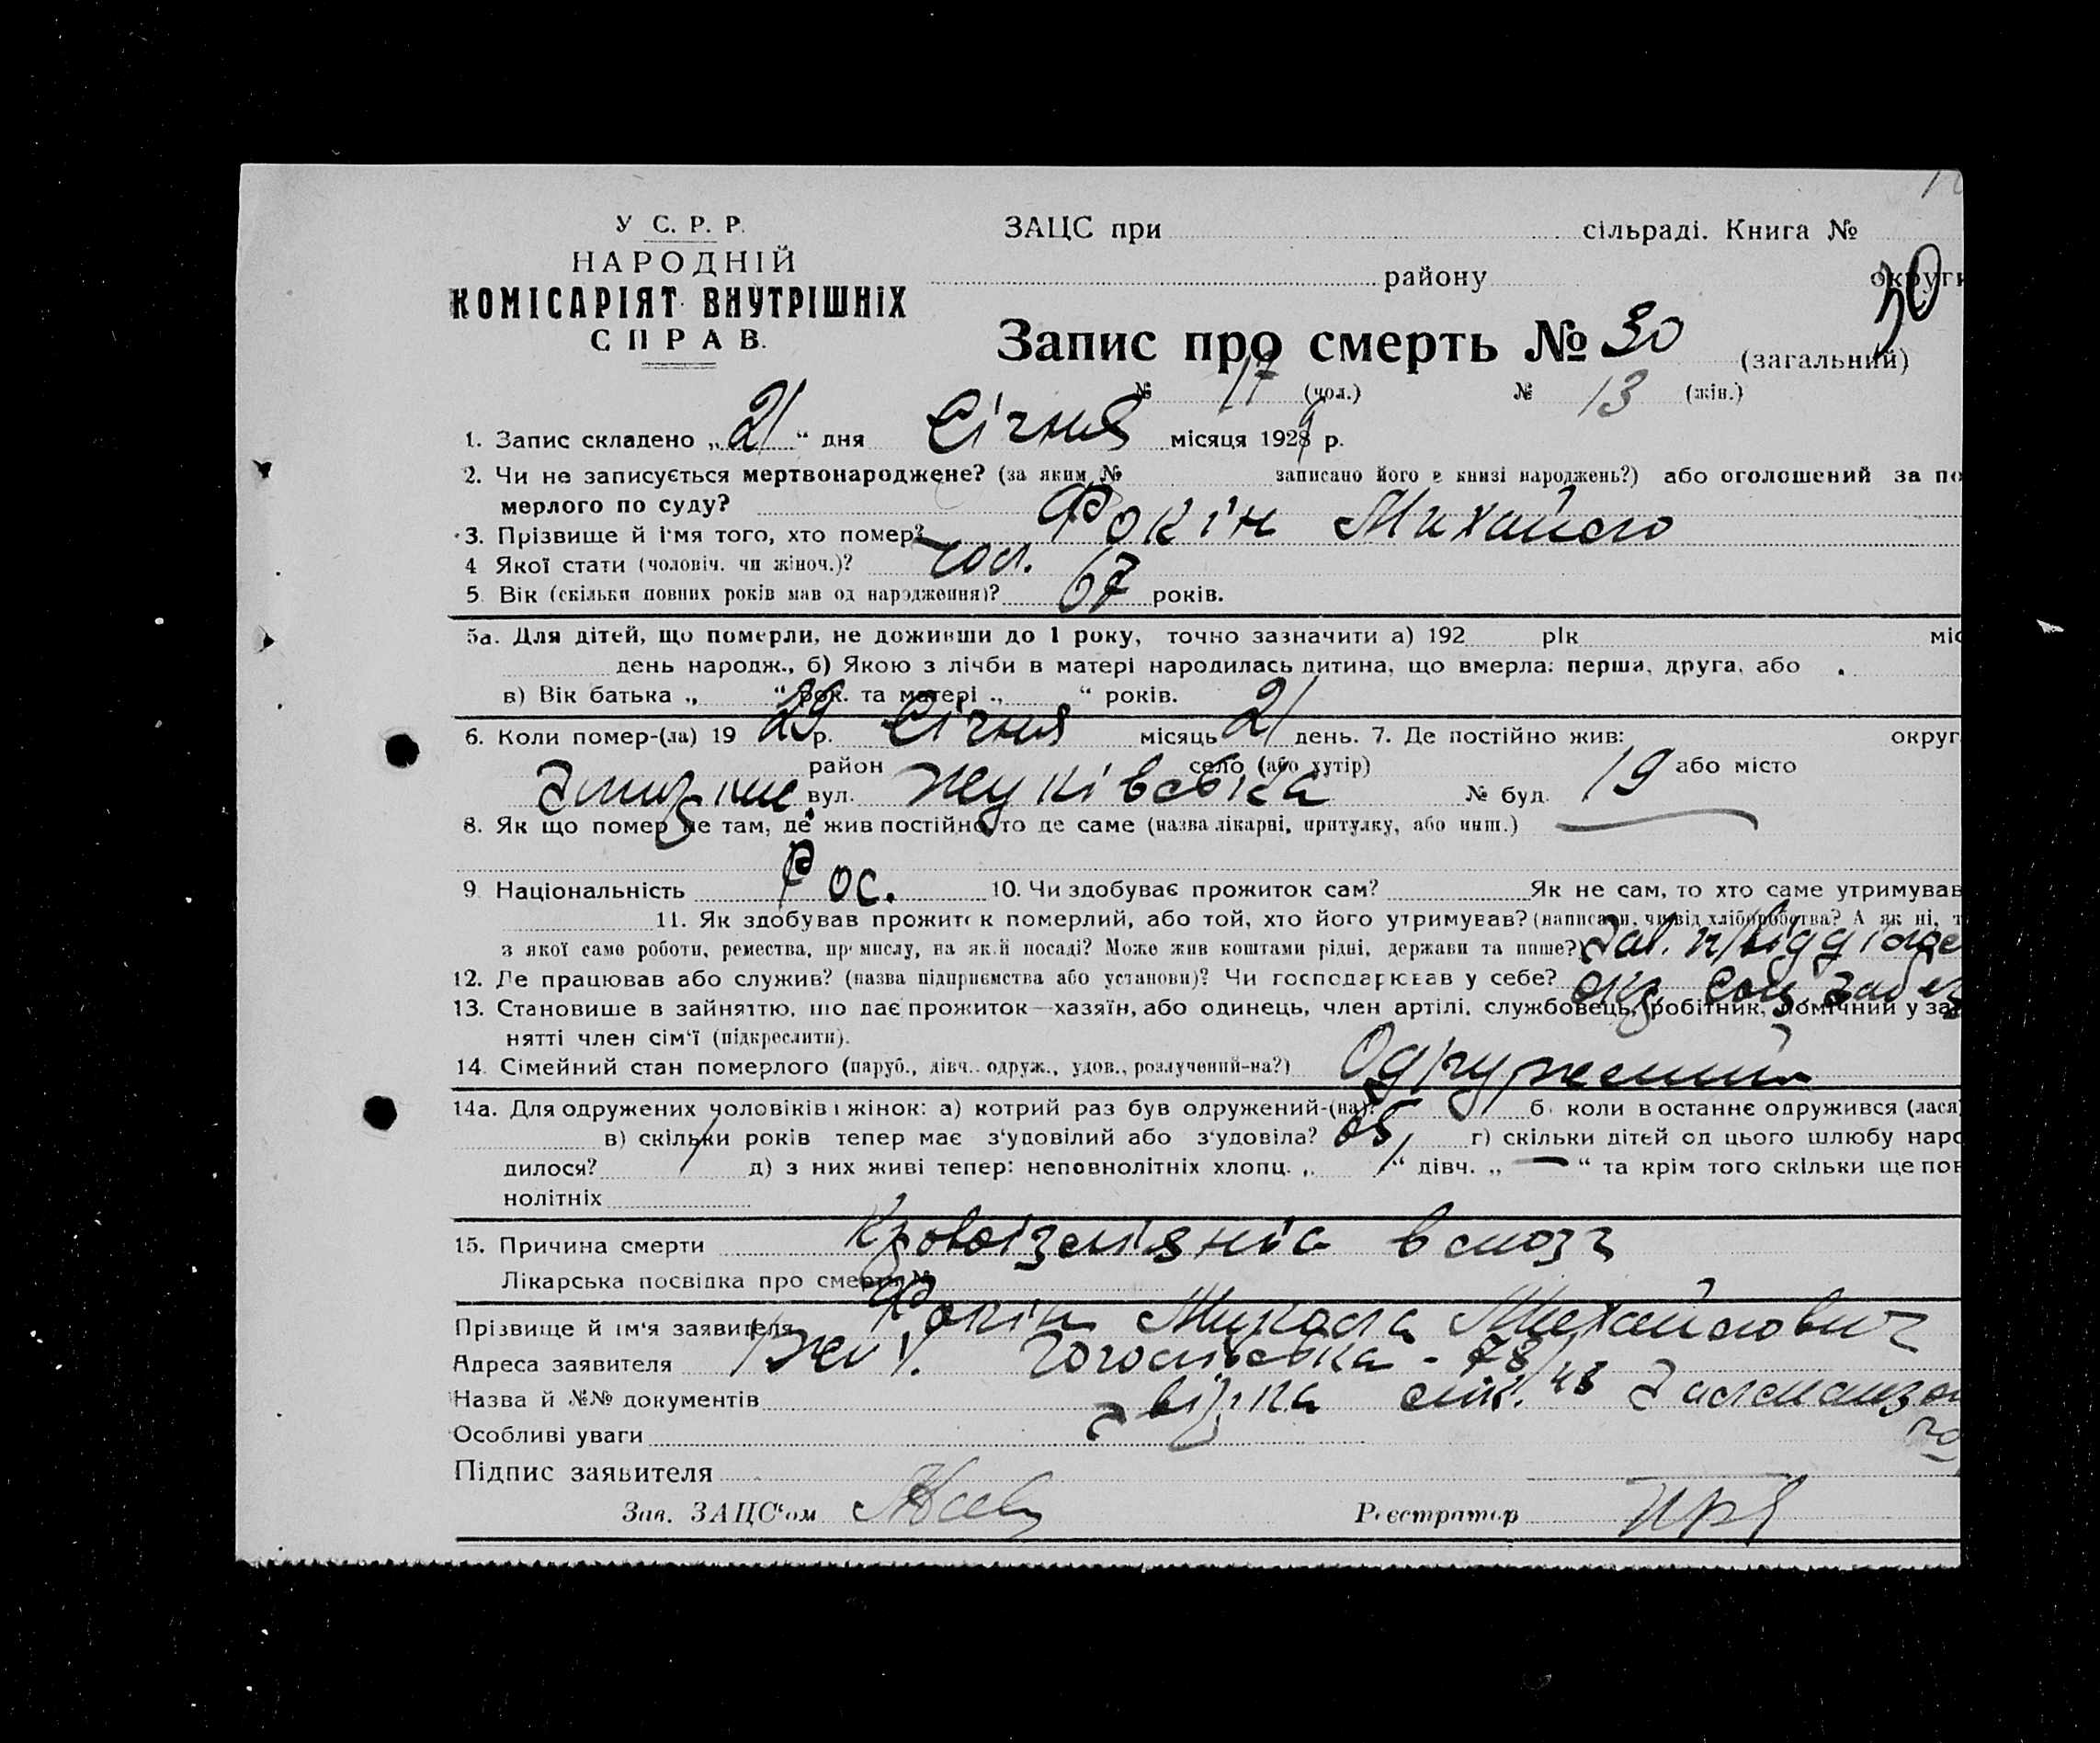 У С. Р. Р.
НАРОДНІЙ
КОМІСАРІЯТ ВНУТРІШНІХ
СПРАВ.
ЗАЦС при сільраді. Книга №
району округи
30
Запис про смерть № 30 (загальний)
№ 17 (чол.) № 13 (жін.)
1. Запис складено „21“ дня Січня місяця 1929 р.
2. Чи не записується мертвонароджене? (за яким № записано його в книзі народжень?) або оголошений за по
мерлого по суду?
3. Прізвище й ім'я того, хто помер? Фокін Михайло
4 Якої стати (чоловіч. чи жіноч.)? чол.
5. Вік (скільки повних років мав од народження)? 67 років.
5а. Для дітей, що померли, не доживши до 1 року, точно зазначити а) 192 рік міс
день народж., б) Якою з лічби в матері народилась дитина, що вмерла: перша, друга, або
в) Вік батька „ “ рок. та матері „ “ років.
6. Коли помер-(ла) 19 29 р. Січня місяць 21 день. 7. Де постійно жив: округ
район село (або хутір) або місто
вул. Жуківська № буд. 19
8. Як що помер не там, де жив постійно, то де саме (назва лікарні, притулку, або инш.) —
9. Національність Рос. 10. Чи здобуває прожиток сам? Як не сам, то хто саме утримував
11. Як здобував прожиток померлий, або той, хто його утримував? (написати, чи від хліборобства? А як ні, т
з якої саме роботи, ремества, промислу, на якій посаді? Може жив коштами рідні, держави та инше?) Зав. п/відділе
12. Де працював або служив? (назва підприємства або установи)? Чи господарював у себе? окр. соц. забез
13. Становище в зайняттю, що дає прожиток—хазяїн, або одинець, член артілі, службовець, робітник, помічний у за
нятті член сім'ї (підкреслити).
14. Сімейний стан померлого (паруб., дівч., одруж., удов., розлучений-на?) Одружений
14а. Для одружених чоловіків і жінок: а) котрий раз був одружений-(на)? б) коли востаннє одружився (лася)
в) скільки років тепер має з'удовілий або з'удовіла? 65 г) скільки дітей од цього шлюбу наро
дилося? 1 д) з них живі тепер: неповнолітніх хлопц. „ 1 “ дівч. „ — “ та крім того скільки ще пов
нолітніх
15. Причина смерти Кровоізліяніє в мозг
Лікарська посвідка про смерть №
Прізвище й ім'я заявителя Фокін Микола Михайлович
Адреса заявителя Гоголівська - 78/
Назва й №№ документів
Особливі уваги
Підпис заявителя
Зав. ЗАЦС'ом Реєстратор